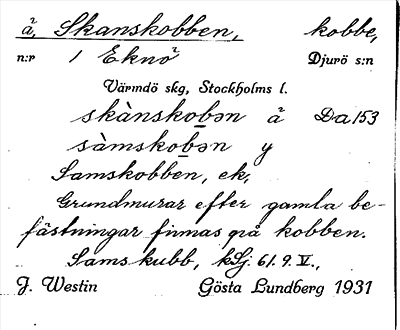 å, Skanskobben, kobbe,
n:r 1 Eknö Djurö s:n
Värmdö skg, Stockholms l.
skànskobən å Da 153
sàmskobən y
Samskobben, ek,
Grundmurar efter gamla be-
fästningar finnas på kobben.
Samskubb, kSj. 61.9.V.,
J. Westin Gösta Lundberg 1931